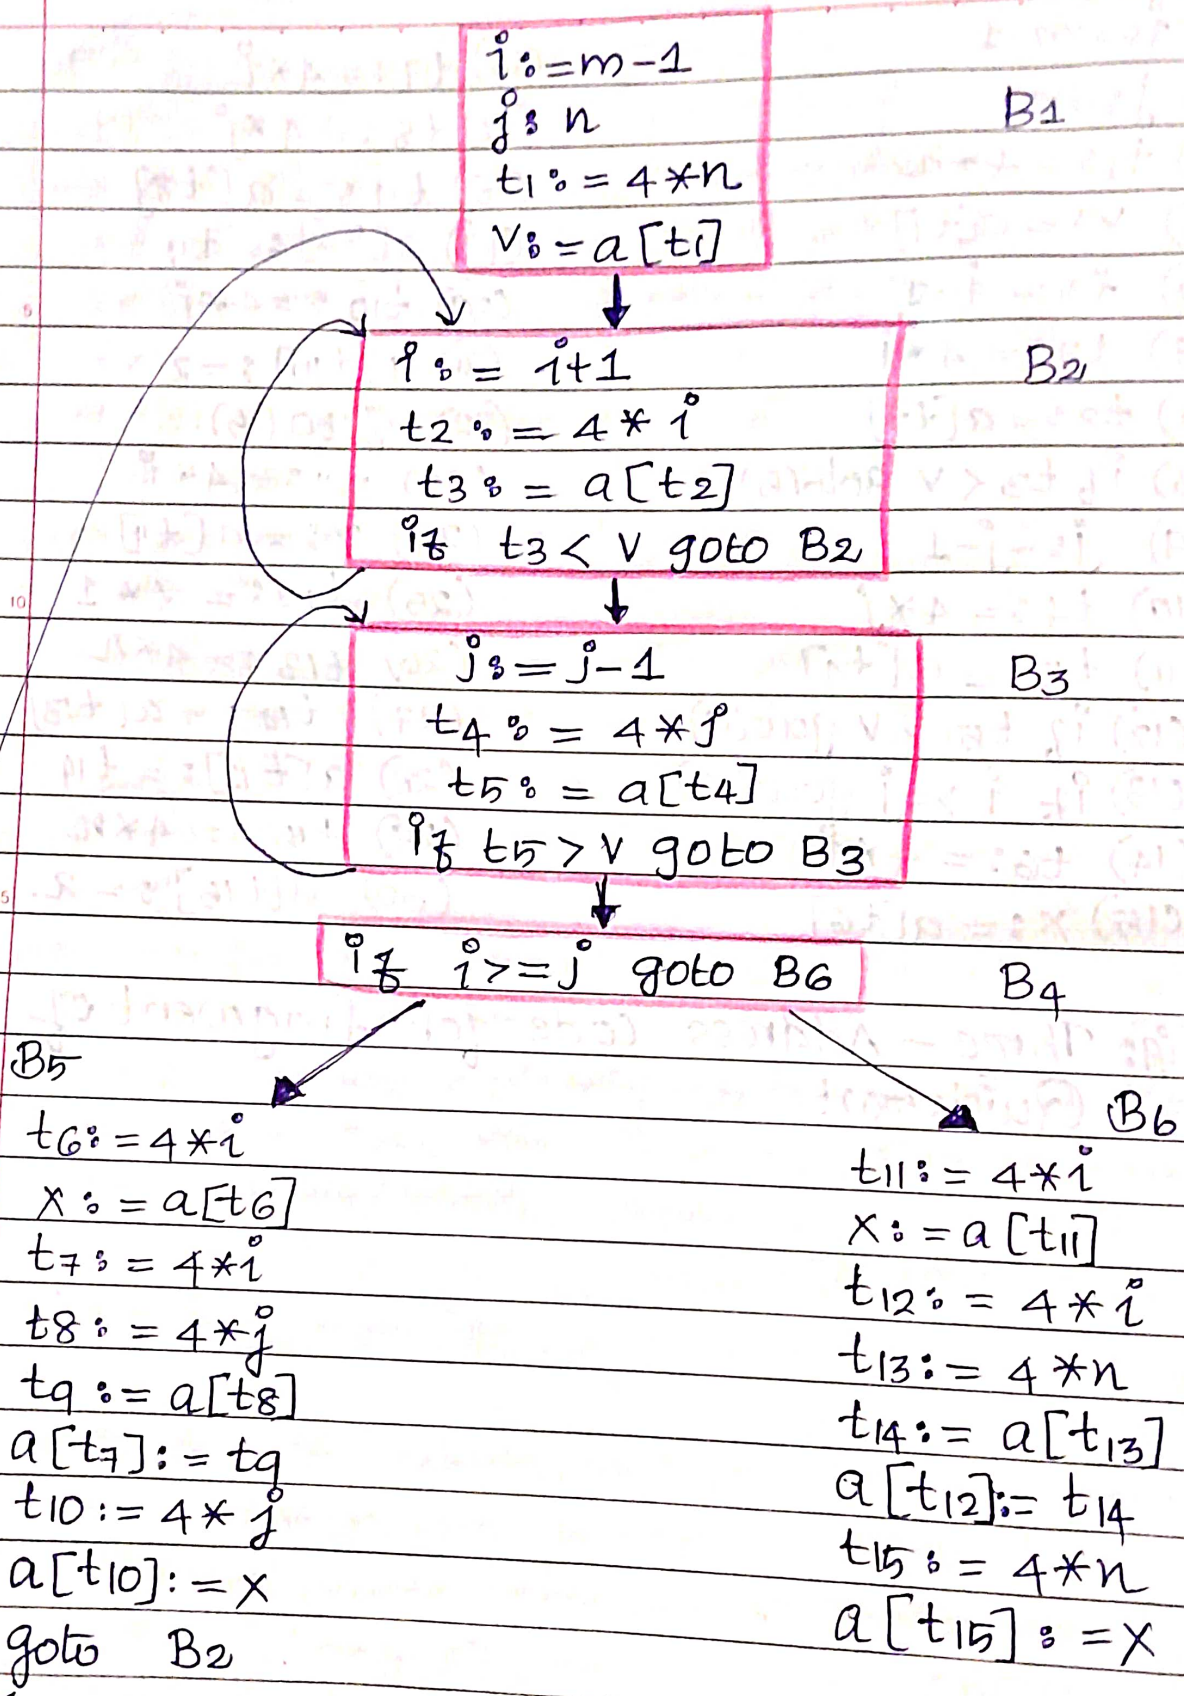 i:=m-1
j: n
B1
t1:=4*n
v:=a[t1]
i:= i+1
B2
t2:=4*i
t3:= a[t2]
if t3< v goto B2
10
j:=j-1
B3
t4:= 4*j
t5:= a[t4]
if t5>v goto B3
5
if i>=j goto B6
B4
B5
t6:=4*i
x:=a[t6]
t7:=4*i
t8:=4*j
t9:=a[t8]
a[t7]:=t9
t10:=4*j
a[t10]:=x
goto B2
B6
t11:= 4*i
x:=a[t11]
t12:= 4*i
t13:= 4*n
t14:= a[t13]
a[t12]:= t14
t15:= 4*n
a[t15]:=x